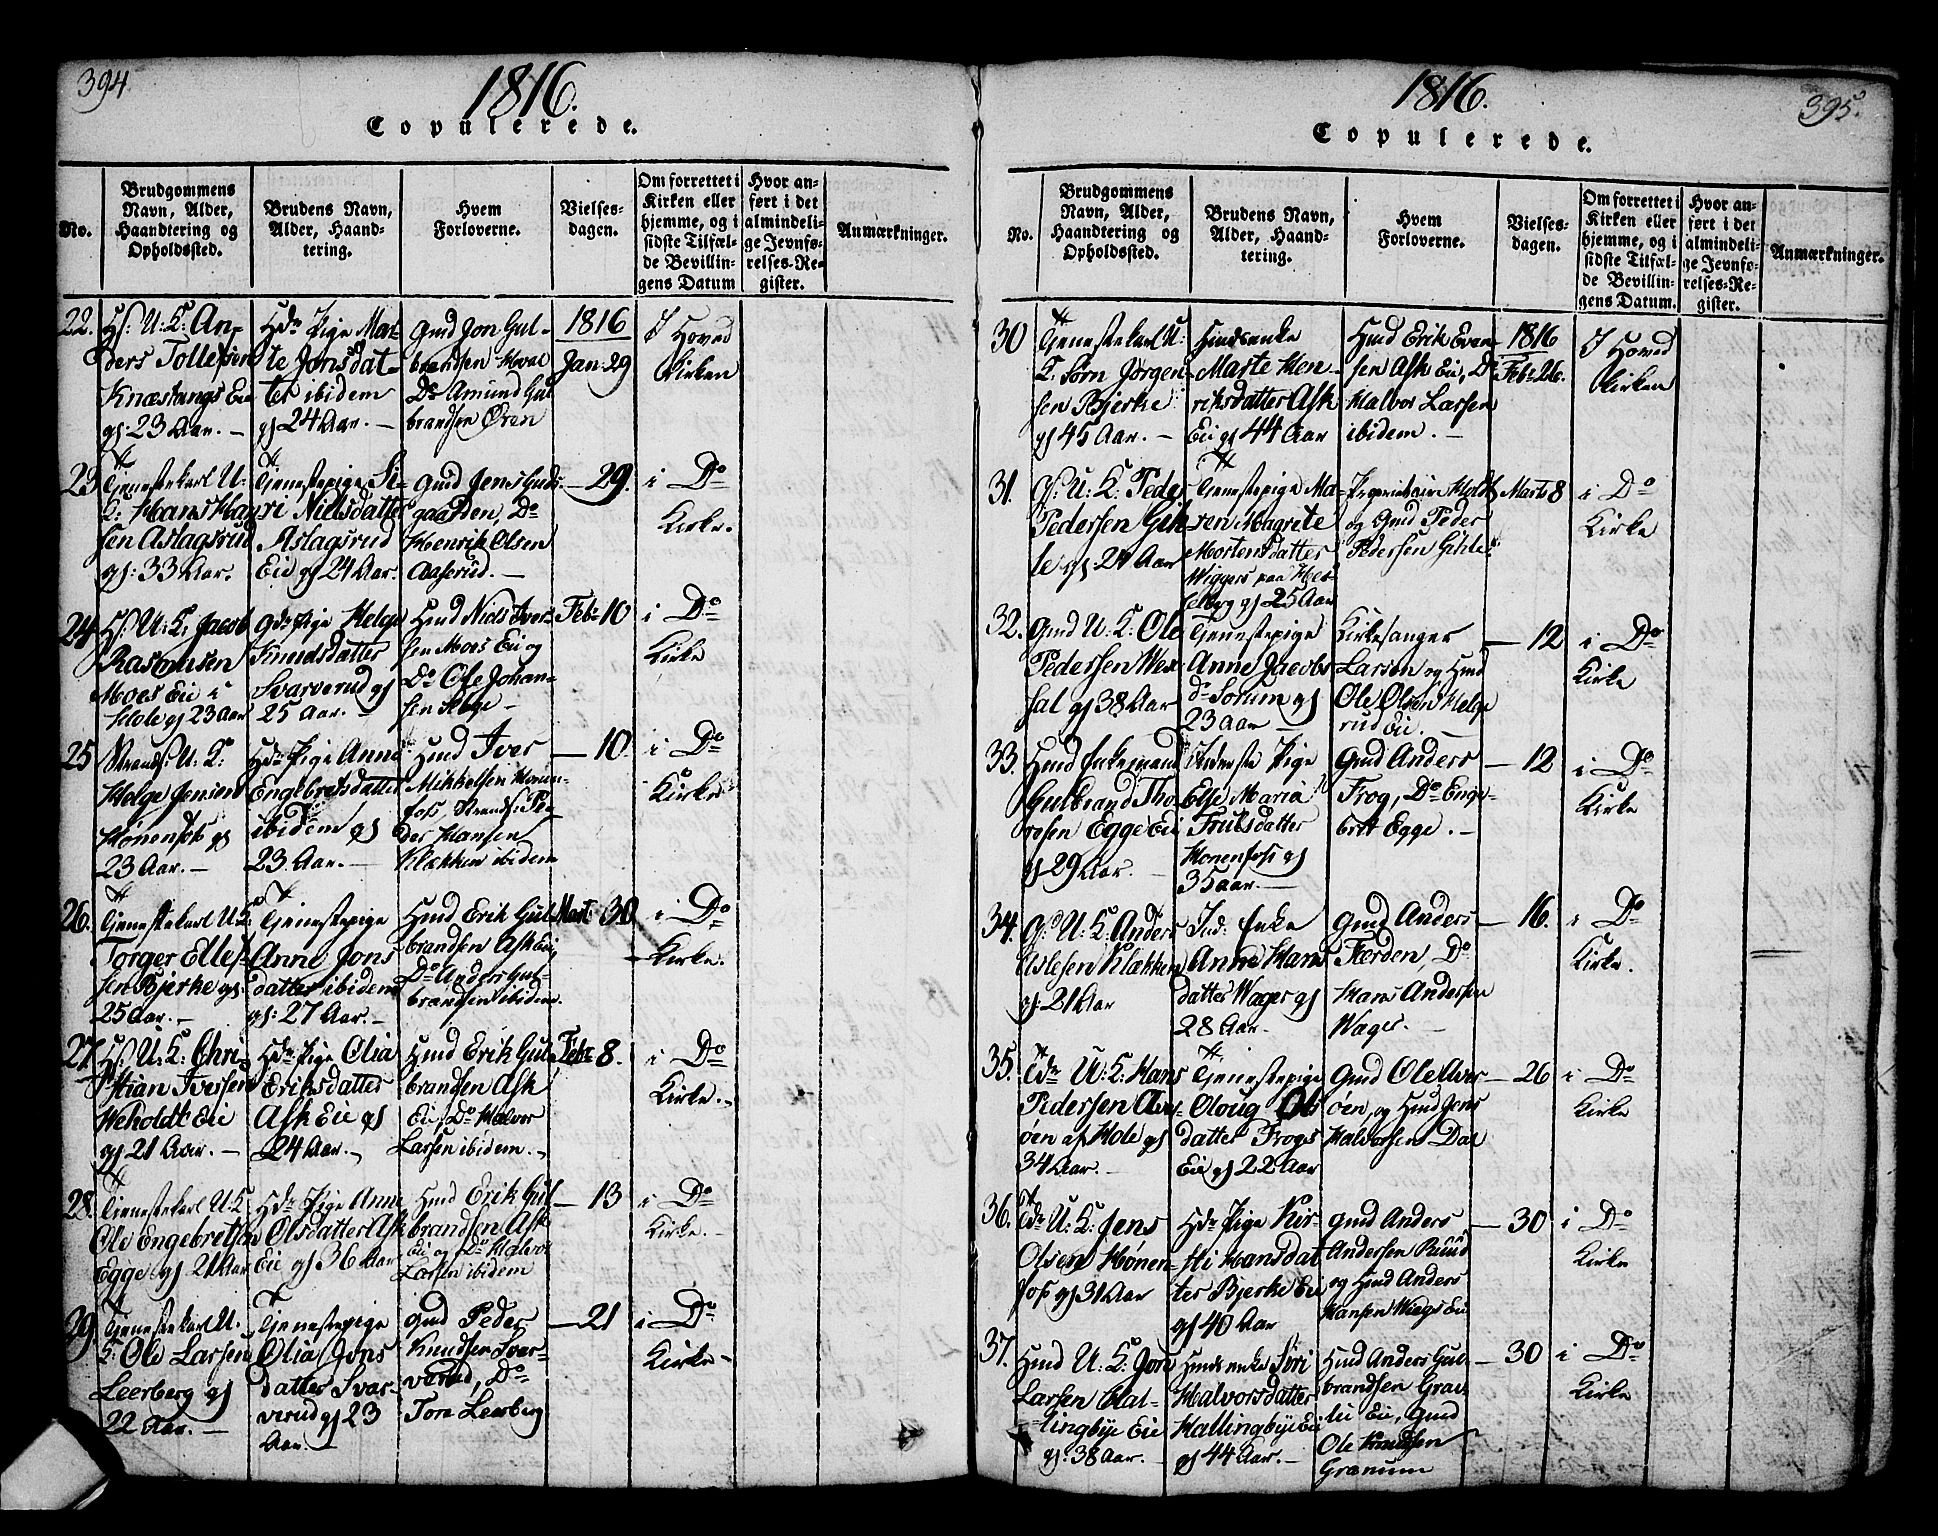 394
1816.
Copulerede.
No.
Brudgommens
Navn, Alder,
Haandtering og
Opholdssted.
Brudens Navn,
Alder, Haand-
tering.
Hvem
Forloverne.
Vielses-
dagen.
Om forrettet i
Kirken eller
hjemme, og i
sidste Tilfæl-
de Bevillin-
gens Datum
Hvor an-
ført i det
almindeli-
ge Jevnfø-
relses-Re-
gister.
Anmærkninger.
22.
Hs: U: K: An-
ders Tollefsen
Knæstangs Eie
gl: 23 Aar. —
Hds Pige Mar-
te Jonsdat-
ter ibidem
gl 24 Aar. —
Gmd Jon Gul-
brandsen Hval
Do Amund Gul
brandsen Øren
1816
Jan 29
I Hoved
Kirken
23
Tjenestekarl U:
K: Hans Han
sen Aslagsrud
gl: 33 Aar.
Tjenestepige Si-
ri Nielsdatter
Aslagsrud
Eie gl 24 Aar.
Gmd Jens Guds-
gaarden, Do
Henrik Olsen
Aaserud. —
— 29.
i Do
Kirke.
24
Hs: U: K: Jacob
Rasmusen
Moes Eie i
Hole gl 23 Aar
Gds Pige Helge
Knudsdatter
Svarverud gl
25 Aar. —
Hmd Niels Iver-
sen Moes Eie og
Do Ole Johan-
sen —
Febr 10
i Do
Kirke
25
Strands: U: K:
Helge Jensen
Hønenfos gl
23 Aar. —
Hds Pige Anne
Engebretsdatter
ibidem gl
23 Aar. —
Hmd Iver
Mikkelsen Hønen-
fos, Strands: Pe-
der Hansen
Klækken ibidem
— 10.
i Do
Kirke
26.
Tjenestekarl U: K:
Torger Ellef-
sen Bjerke gl:
25 Aar. —
Tjenestepige
Anne Jons
datter ibidem
gl: 27 Aar. —
Hmd Erik Gul
brandsen Ask Eie,
Do Anders Gul-
brandsen ibidem.
Mart 30
i Do
Kirke.
27.
Hs: U: K: Chri-
stian Iversen
Veholdt Eie
gl 21 Aar. —
Hds Pige Olia
Eriksdatter
Ask Eie gl
24 Aar. —
Hmd Erik Gul
brandsen Ask
Eie, Do Halvor
Larsen ibidem. —
Febr 8.
i Do
Kirke. —
28.
Tjenestekarl U: K:
Ole Engebretsen
Egge gl 21 Aar
Hds Pige Anne
Olsdatter Ask
Eie gl 36 Aar
Hmd Erik Gul
brandsen Ask
Eie og Do Halvor
Larsen ibidem
— 13
i Do
Kirke. —
29.
Tjenestekarl U.
K: Ole Larsen
Leerberg gl
22 Aar. —
Tjenestepige
Olia Jons
datter Svar-
verud gl 23
Aar —
Gmd Peder
Knudsen Svar-
verud, Do
Tore Leerberg
— 21
i Do
Kirke —
1816.
395.
Copulerede.
No.
Brudgommens
Navn, Alder,
Haandtering og
Opholdssted.
Brudens Navn,
Alder, Haand-
tering.
Hvem
Forloverne.
Vielses-
dagen.
Om forrettet i
Kirken eller
hjemme, og i
sidste Tilfæl-
de Bevillin-
gens Datum.
Hvor an-
ført i det
almindeli-
ge Jevnfø-
relses-Re-
gister.
Anmærkninger.
30
Tjenestekarl U:
K. Sørn Jørgen-
sen Bjerke
gl 45 Aar. —
Huusenke
Marte Hen-
riksdatter Ask
Eie gl 44 Aar
Hmd Erik Even-
sen Ask Eie, Do
Halvor Larsen
ibidem. —
1816
Febr 26.
I Hoved
Kirken
31.
Gs: U: K: Peder
Pedersen Gih-
le gl: 24 Aar
Tjenestepige Ma-
ren Magrete
Mortensdatter
Wiggers paa Hes-
selbyg gl 25 Aar
Procurator Holdt
og Gmd Peder
Pedersen Gihle
Marts 8
i Do
Kirke
32.
Gmd U: K: Ole
Pedersen Wex-
sal gl 38 Aar
Tjenestepige
Anne Jacobs
dr Sorum gl
23 Aar —
Kirkesanger
Larsen og Hmd
Ole Olsen Helge
rud Eie. —
— 12
i Do
Kirke
33.
Hmd Enkemand
Gulbrand Tho-
resen Egge Eie
gl 29 Aar. —
Inderste Pige
Else Maria
Trulsdatter
Hønenfoss gl
35 Aar. —
Gmd Anders
Frog, Do Enge-
bret Egge. —
— 12
i Do
Kirke
34.
G: U: K. Anders
Aslesen Klækken
gl: 21 Aar
Ind: Enke
Anne Hans
datter Wager gl
28 Aar. —
Gmd Anders
Færden, Do
Hans Andersen
Wager. —
— 16.
i Do
Kirke.
35.
Tdr U: K: Hans
Pedersen
øen af Hole gl
34 Aar. —
Tjenestepige
Oloug Ols
datter Frogs
Eie gl 22 Aar
Gmd Ole Aver
øen, og Hmd Jens
Halvorsen Dal
— 26
i Do
Kirke
36.
Tdr U: K: Jens
Olsen Hønen-
fos gl 31 Aar
Hds Pige Kir-
sti Hansdat
ter Bjerke Eie
gl 40 Aar
Gmd Anders
Andersen Ruud
og Hmd Anders
Hansen Wægs Eie
— 30
i Do
Kirke
37.
Hmd U: K: Jon
Larsen Hal-
lingbye Eie
gl: 38 Aar. —
Huusenke Siri
Halvorsdatter
Hallingbye Eie
gl 44 Aar. —
Hmd Anders Gul
brandsen Grau-
lie Eie, Gmd
Ole Knudsen
Granum
— 30
i Do
Kirke